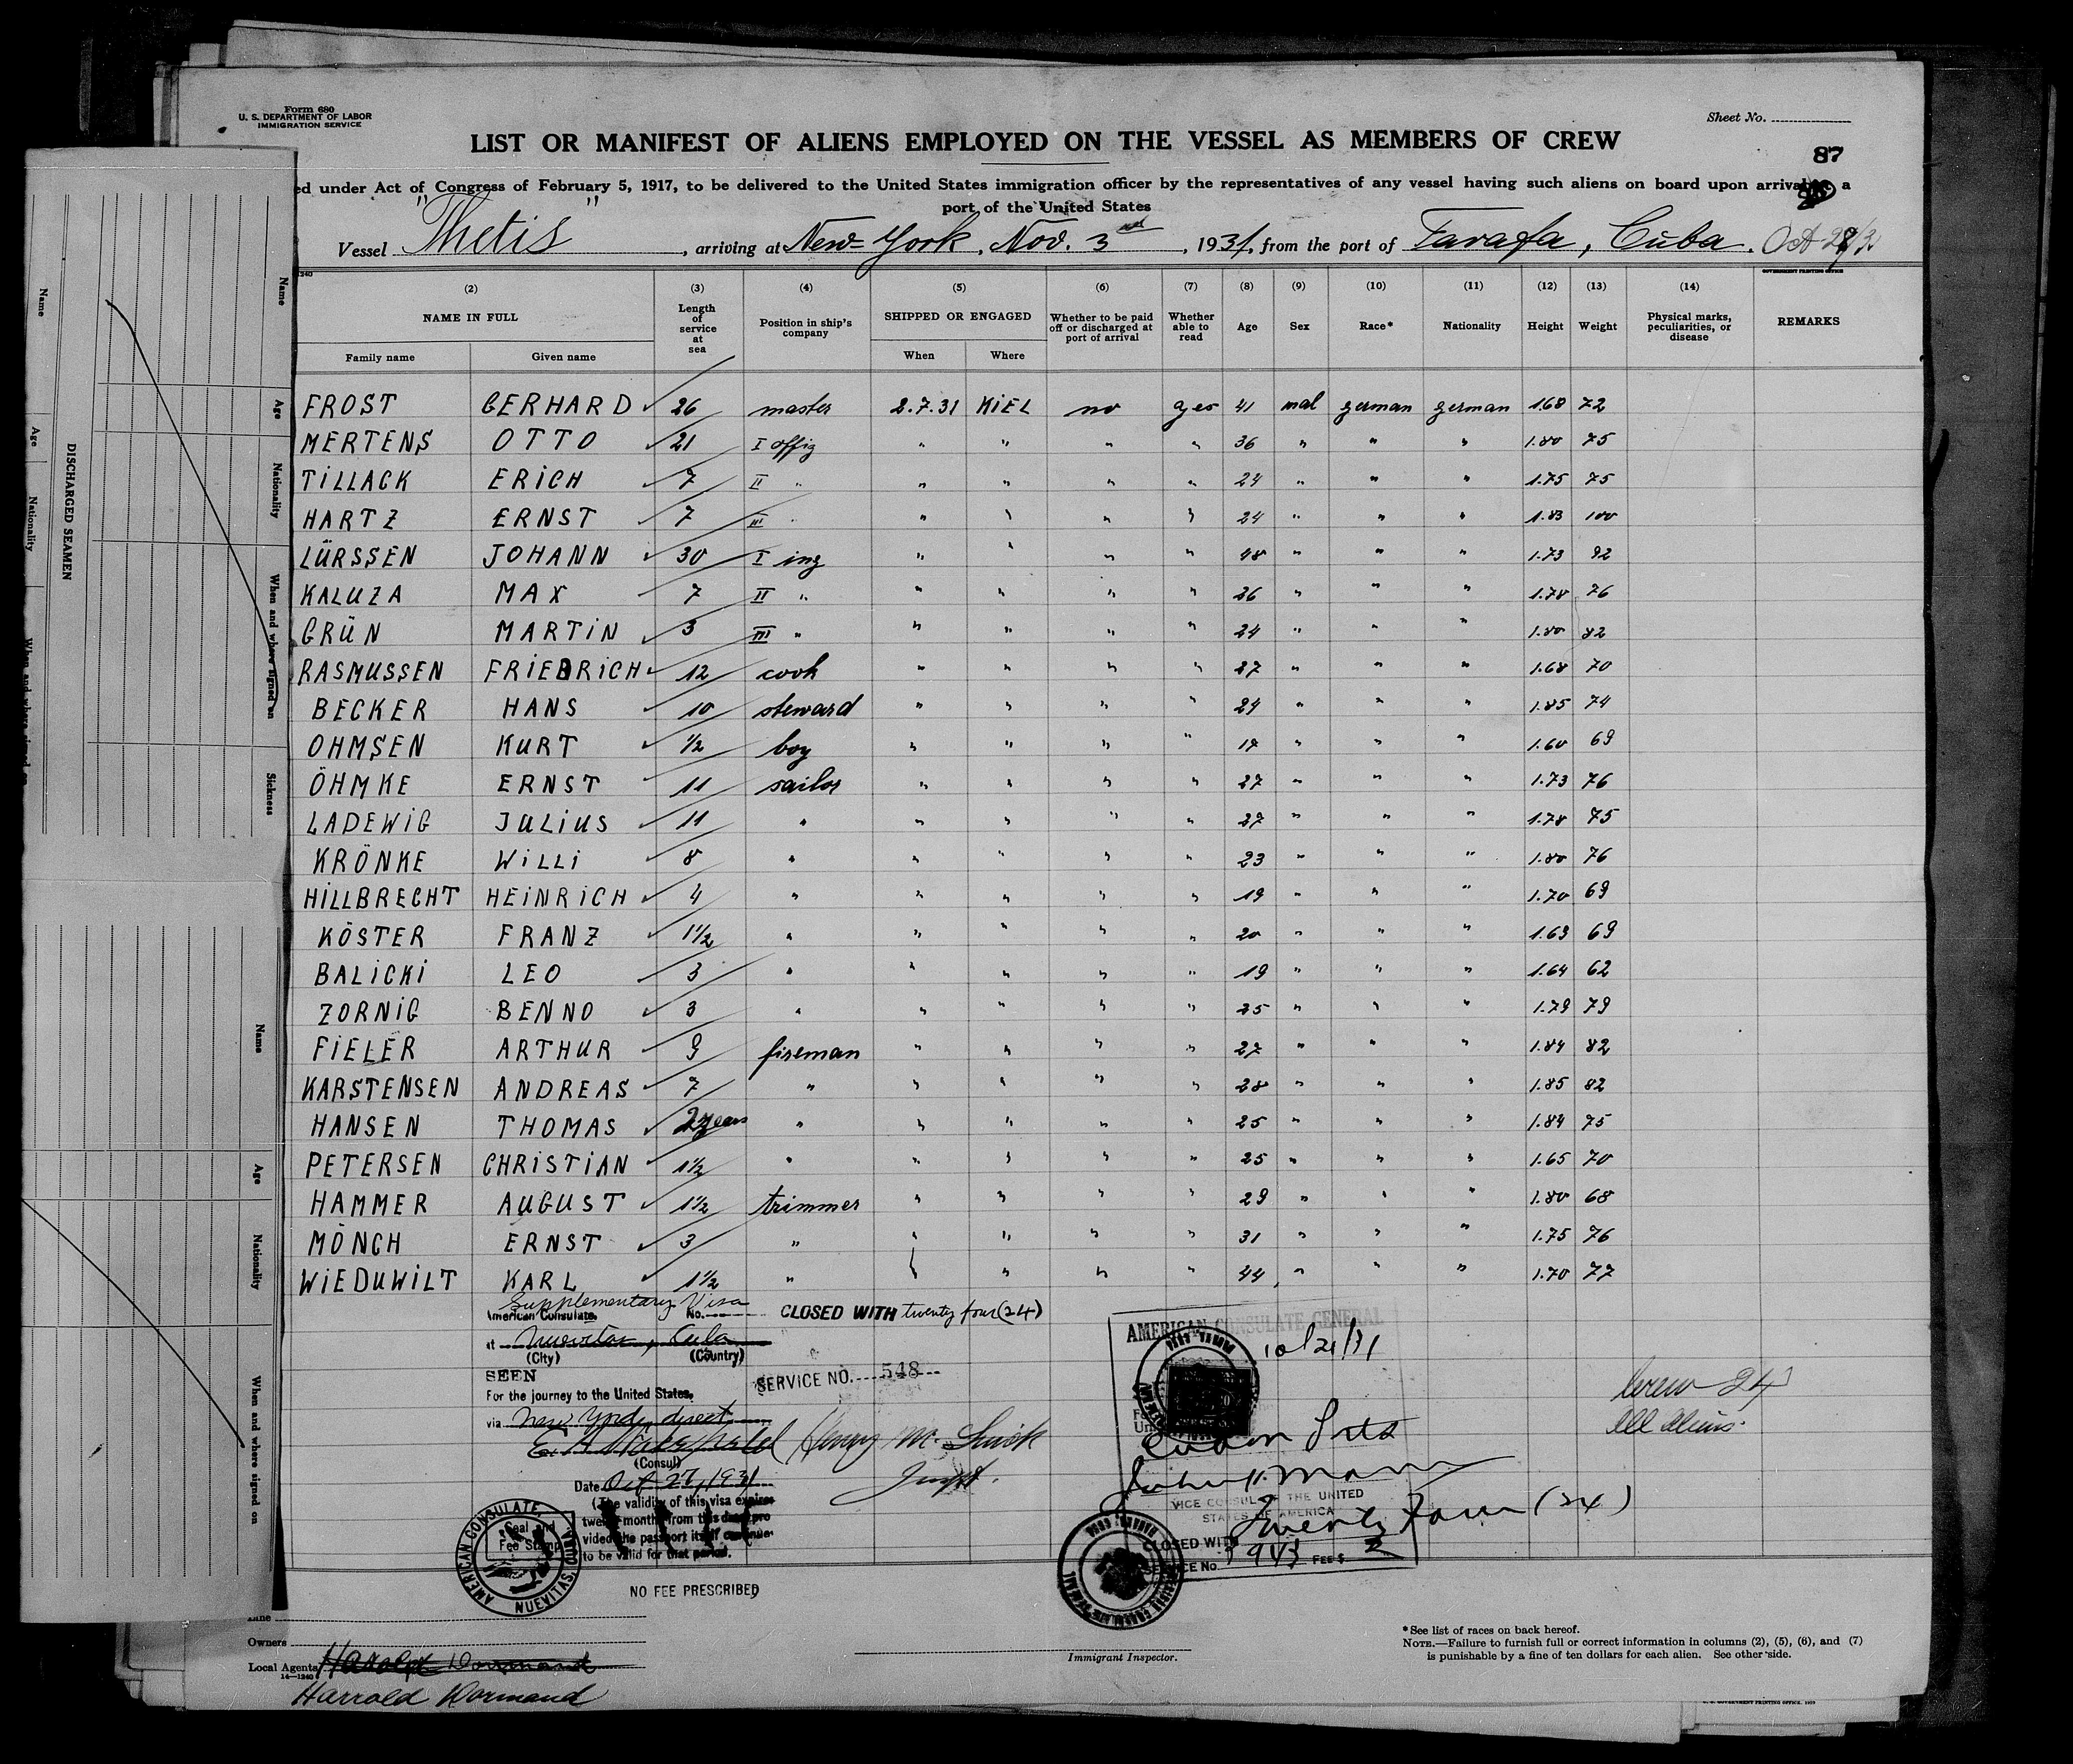 Form 680
U. S. DEPARTMENT OF LABOR
IMMIGRATION SERVICE
Sheet No.
LIST OR MANIFEST OF ALIENS EMPLOYED ON THE VESSEL AS MEMBERS OF CREW
87
ed under Act of Congress of February 5, 1917, to be delivered to the United States immigration officer by the representatives of any vessel having such aliens on board upon arrival at a
port of the United States
Vessel "Thetis", arriving at New-York, Nov. 3rd, 1931, from the port of Tarafa, Cuba. Oct
GOVERNMENT PRINTING OFFICE
(2) (3) (4) (5) (6) (7) (8) (9) (10) (11) (12) (13) (14)
NAME IN FULL Length of service at sea Position in ship's company SHIPPED OR ENGAGED Whether to be paid off or discharged at port of arrival Whether able to read Age Sex Race* Nationality Height Weight Physical marks, peculiarities, or disease REMARKS
Family name Given name When Where
FROST GERHARD ✓ 26 master 2.7.31 KiEL no yes 41 mal german german 1.68 72
MERTENS OTTO ✓ 21 I offiz " " " " 36 " " " 1.80 75
TiLLACK ERiCH ✓ 7 II " " " " " 24 " " " 1.75 75
HARTZ ERNST ✓ 7 III " " " " " 24 " " " 1.83 100
LÜRSSEN JOHANN ✓ 30 I ing " " " " 48 " " " 1.73 92
KALUZA MAX ✓ 7 II " " " " " 26 " " " 1.78 76
GRÜN MARTiN ✓ 3 III " " " " " 24 " " " 1.80 82
RASMUSSEN FRiEDRiCH ✓ 12 cook " " " " 27 " " " 1.68 70
BECKER HANS ✓ 10 steward " " " " 24 " " " 1.85 74
OHMSEN KURT ✓ 1/2 boy " " " " 17 " " " 1.60 69
ÖHMKE ERNST ✓ 11 sailor " " " " 27 " " " 1.73 76
LADEWiG JULiUS ✓ 11 " " " " " 27 " " " 1.78 75
KRÖNKE WiLLi ✓ 8 " " " " " 23 " " " 1.80 76
HiLLBRECHT HEiNRiCH ✓ 4 " " " " " 19 " " " 1.70 69
KÖSTER FRANZ ✓ 1 1/2 " " " " " 20 " " " 1.69 69
BALiCKi LEO ✓ 3 " " " " " 19 " " " 1.64 62
ZORNiG BENNO ✓ 3 " " " " " 25 " " " 1.79 79
FiELER ARTHUR ✓ 9 fireman " " " " 27 " " " 1.84 82
KARSTENSEN ANDREAS ✓ 7 " " " " " 28 " " " 1.85 82
HANSEN THOMAS ✓ 2 years " " " " " 25 " " " 1.84 75
PETERSEN CHRiSTiAN ✓ 1 1/2 " " " " " 25 " " " 1.65 70
HAMMER AUGUST ✓ 1 1/2 trimmer " " " " 29 " " " 1.80 68
MÖNCH ERNST ✓ 3 " " " " " 31 " " " 1.75 76
WiEDUWiLT KARL ✓ 1 1/2 " " " " " 44 " " " 1.70 77
Supplementary Visa
American Consulate. No.
CLOSED WITH twenty four (24)
at Nuevitas, Cuba
(City) (Country)
SEEN
For the journey to the United States,
via New York, direct
(Consul)
Date Oct 27, 1931
(The validity of this visa expires
twelve months from this date pro
vided the passport itself continues
to be valid for that period.
Seal and
Fee Stamp
AMERICAN CONSULATE
NUEVITAS, CUBA
NO FEE PRESCRIBED
SERVICE NO. 548
Henry M.
AMERICAN CONSULATE GENERAL
10/21/31
VICE CONSUL OF THE UNITED
STATES OF AMERICA
Twenty Four (24)
CLOSED WITH
SERVICE No. 943 FEE $ 2
Crew 24
All Aliens.
Line
Owners
Local Agents Harold Dormand
14—1240
Harrold Dormand
Immigrant Inspector.
*See list of races on back hereof.
NOTE.—Failure to furnish full or correct information in columns (2), (5), (6), and (7)
is punishable by a fine of ten dollars for each alien. See other side.
DISCHARGED SEAMEN
Name
Age
Nationality
When and where signed on
Sickness
Name
Age
Nationality
When and where signed on
Name
Age
Nationality
When and where signed on